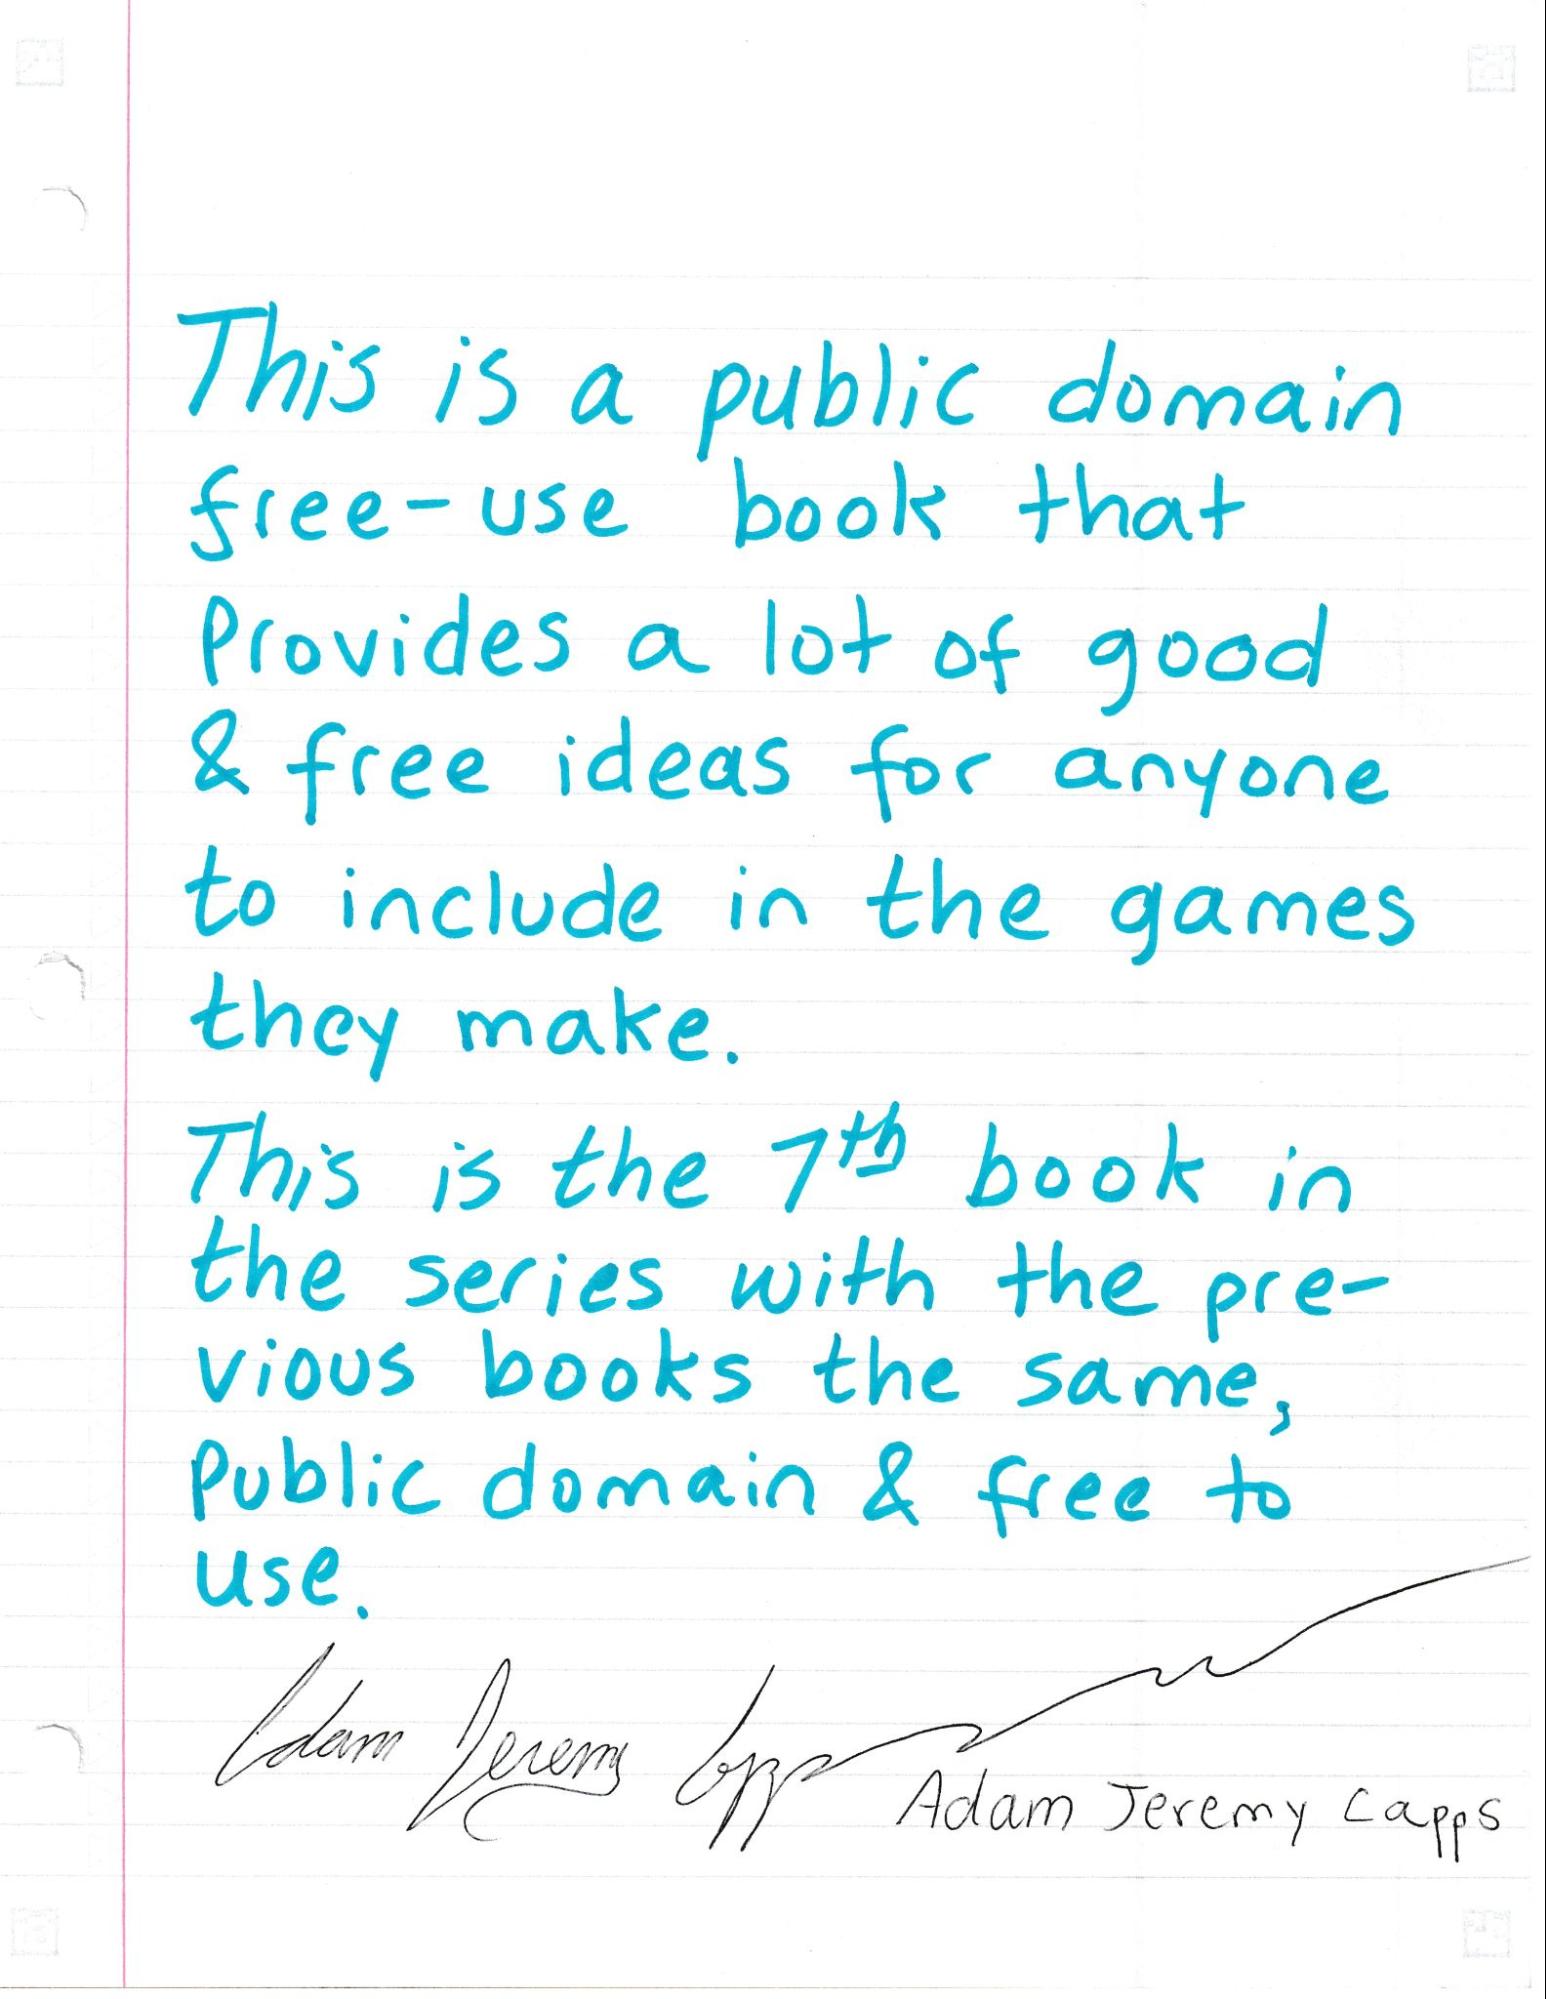 This is a public domain
free-use book that
Provides a lot of good
& free ideas for anyone
to include in the games
they make.
This is the 7th book in
the series with the pre-
vious books the same,
Public domain & free to
use.
Adam Jeremy Capps
Adam Jeremy Capps